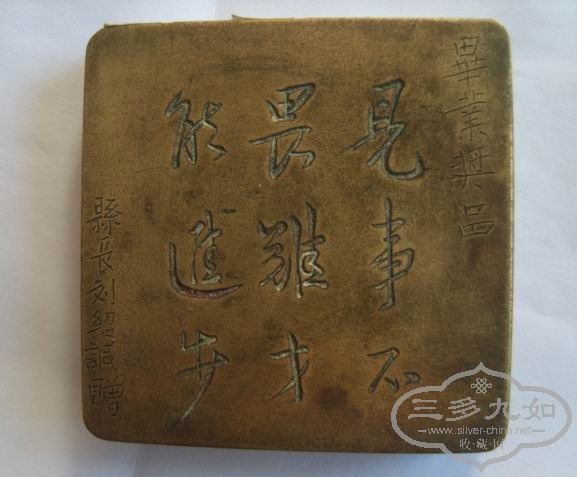 畢業獎品
見事不
畏難才
能進步
縣長刘紹諴贈
三多九如
www.silver-china.net
收·藏·网